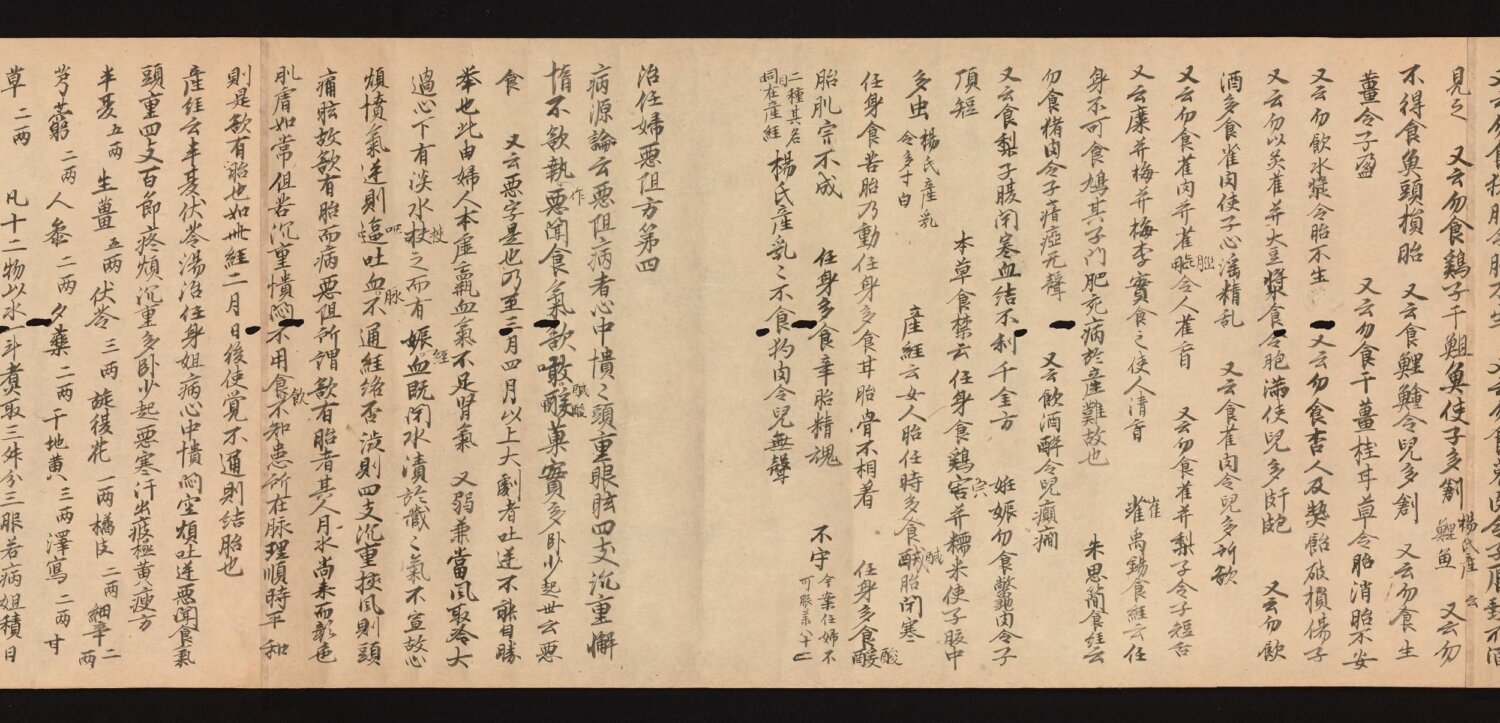 見之 又云勿食鷄子干鱓魚使子多創 鯉魚 楊氏産云 又云勿
不得食魚頭損胎 又云食鯉鱠令兒多創 又云勿食生
薑令子盈 又云勿食干薑桂甘草令胎消胎不安
又云勿飲水漿令胎不生 又云勿食杏人及𤍠飴破損傷子
又云勿以炙雀并大豆漿食令胞滿使兒多䵟皰 又云勿飲
酒多食雀肉使子心淫精乱 又云食雀肉令兒多所欲
又云勿食雀肉并雀𦠄令人雀盲 又云勿食雀并梨子令子短舌
又云糜并梅并梅李實食之使人清盲 雀禹錫食經云任
身不可食鳩其子門肥充病於産難故也 朱思簡食經云
勿食猪肉令子瘖瘂无聲 又云飲酒醉令兒癲癇
又云食梨子腹閇寒血結不利千金方 妊娠勿食鱉龜肉令子
頂短 本草食禁云任身食鷄害并糯米使子腹中
多虫 楊氏産乳令多寸白 産經云女人胎任時多食醎胎閇寒
任身食苦胎乃動任身多食甘胎骨不相着 任身多食酸
胎肌完不成 任身多食辛胎精魂 不守 今案任婦不可服藥八十一
二種其名同在産經 楊氏産乳云不食狗肉令兒無聲
治任婦悪阻方第四
病源論云悪阻病者心中憒〻頭重眼眩四支沉重懈
惰不欲執作悪聞食氣欲噉醎酸菓實多臥少起世云悪
食 又云悪字是也乃至三月四月以上大劇者吐逆不能自勝
挙也此由婦人本虚羸血氣不足腎氣 又弱兼當風取冷大
過心下有淡水挟之而有娠經血既閇水漬於藏〻氣不宣故心
煩憒氣逆則逼吐血脉不通經絡否渋則四支沉重挟風則頭
痛眩故欲有胎而病悪阻所謂欲有胎者其人月水尚来而彩色
肌膚如常但苦沉重憒悶不用食飲不知患所在脉理順時平和
則是欲有胎也如此經二月日後使覚不通則結胎也
産經云半夏伏苓湯治任身姐病心中憒悶空煩吐逆悪聞食氣
頭重四支百節疼煩沉重多臥少起悪寒汗出疲極黄瘦方
半夏五両 生薑五両 伏苓三両 旋復花一両 橘皮二両 細辛二両
芎藭二両 人参二両 夕藥二両 干地黄三両 澤寫二両 甘
草二両 凡十二物以水一斗煮取三升分三服若病姐積日